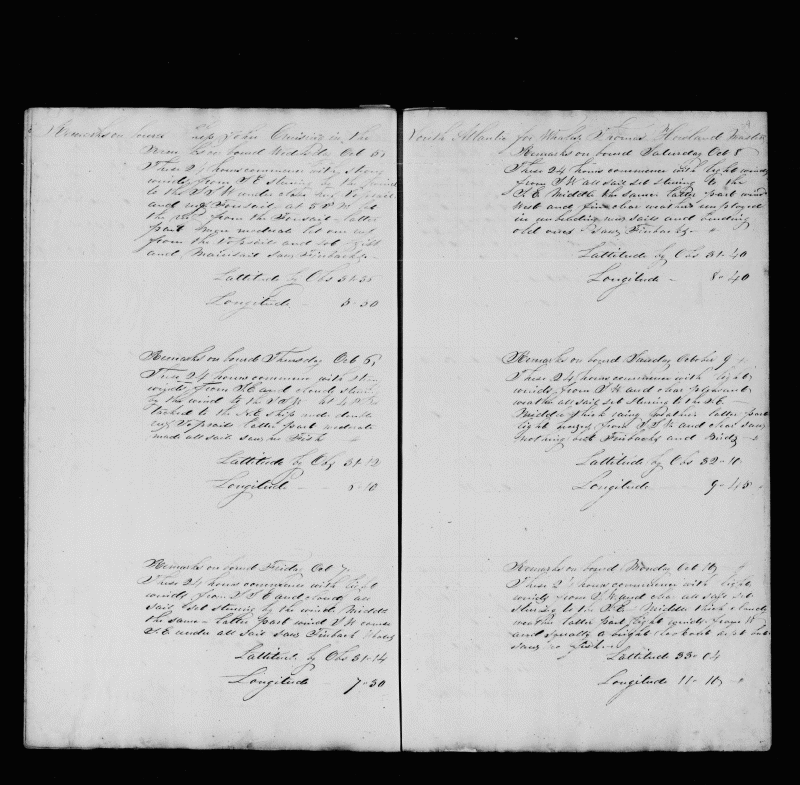 Remarks on board ship John Cruising in the
Remarks on board Wednesday Oct 5,
These 24 hours commence with strong
winds from S.E. steering by the wind
to the S.W. under close
and Foresail at 5 P.M.
the from the Foresail latter
part more moderate let one out
from the Topsails and set
and Mainsail saw Finbacks
Lattitude by Obs 31-35
Longitude 5-30
Remarks on board Thursday Oct 6,
These 24 hours commence with
winds from S.E. and cloudy
by the wind to the S.W. at 4
tacked to the N.E. ship under double
Topsails latter part moderate
made all sail saw no Fish
Lattitude by Obs 31-12
Longitude
Remarks on board Friday Oct 7,
These 24 hours commence with light
winds from S.S.E. and cloudy all
sail set steering by the wind Middle
the same latter part wind S.W.
S.E. under all sail saw Finback Whales
Lattitude by Obs 31-14
Longitude 7-30
South Atlantic for Whales Thomas Howland Master
Remarks on board Saturday Oct 8
These 24 hours commence with light winds
from S.W. all sail set steering to the
S.E. Middle the same latter part wind
West and fine clear weather employed
in unbending new sails and bending
old ones saw Finbacks
Lattitude by Obs 31-40
Longitude 8-40
Remarks on board Sunday October 9
These 24 hours commence with light
winds from S.W. and clear pleasant
weather all sail set steering to the S.E.
Middle thick rainy weather latter part
light from S.S.W. and clear saw
nothing but Finbacks and Birds
Lattitude by Obs 32-10
Longitude 9-45
Remarks on board Monday Oct 10,
These 24 hours commence with light
winds from S.W. and clear all sail set
steering to the S.E. Middle thick cloudy
weather latter part light winds from W
and squally
saw no fish
Lattitude 33-04
Longitude 11-10